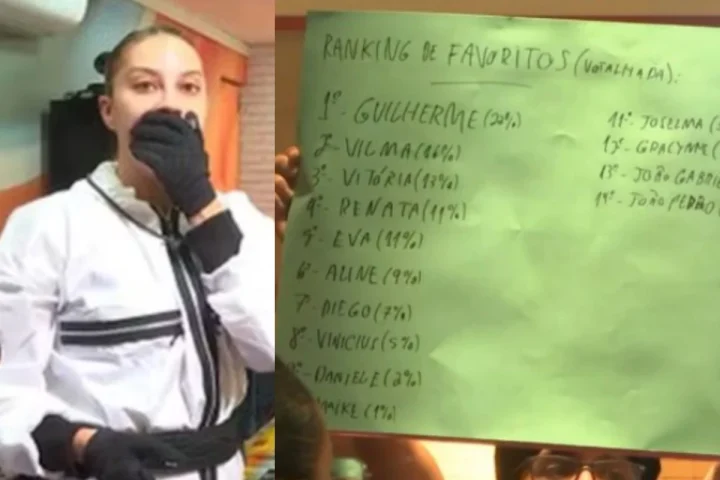 RANKING DE FAVORITOS (VOTALHADA):
1º- GUILHERME (20%)
2º- VILMA (16%)
3º- VITÓRIA (13%)
4º- RENATA (11%)
5º- EVA (11%)
6º- ALINE (9%)
7º- DIEGO (7%)
8º- VINICIUS (5%)
DANIELE (2%)
MIKE (1%)
11º- JOSELMA
12º- GRACYANNE
13º- JOÃO GABRI
14º- JOÃO PEDRO